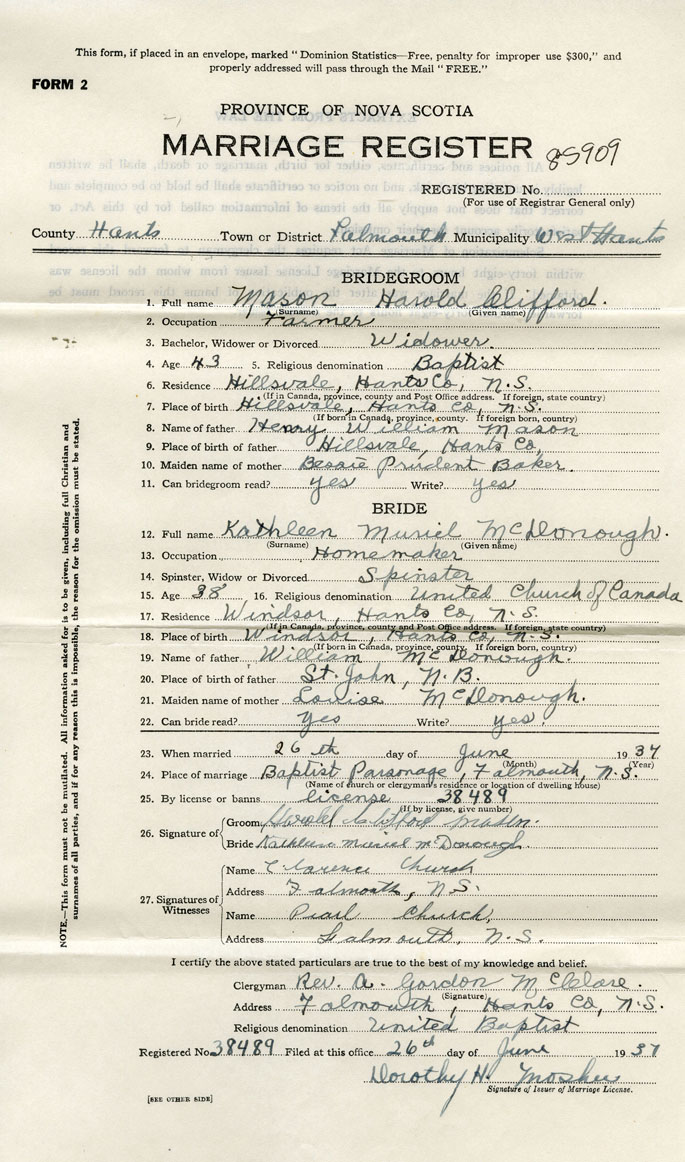 This form, if placed in an envelope, marked "Dominion Statistics—Free, penalty for improper use $300," and
properly addressed will pass through the Mail "FREE."
FORM 2
PROVINCE OF NOVA SCOTIA
MARRIAGE REGISTER 85909
REGISTERED No.
(For use of Registrar General only)
County Hants Town or District Falmouth Municipality West Hants
BRIDEGROOM
1. Full name Mason Harold Clifford.
(Surname) (Given name)
2. Occupation Farmer
3. Bachelor, Widower or Divorced Widower.
4. Age 43 5. Religious denomination Baptist
6. Residence Hillsvale, Hants Co, N.S.
(If in Canada, province, county and Post Office address. If foreign, state country)
7. Place of birth Hillsvale, Hants Co, N.S.
(If born in Canada, province, county. If foreign born, country)
8. Name of father Henry William Mason
9. Place of birth of father Hillsvale, Hants Co,
10. Maiden name of mother Bessie Prudent Baker.
11. Can bridegroom read? yes Write? yes
BRIDE
12. Full name Kathleen Muriel McDonough.
(Surname) (Given name)
13. Occupation Homemaker
14. Spinster, Widow or Divorced Spinster
15. Age 38 16. Religious denomination United Church of Canada
17. Residence Windsor, Hants Co, N.S.
(If in Canada, province, county and Post Office address. If foreign, state country)
18. Place of birth Windsor, Hants Co, N.S.
(If born in Canada, province, county. If foreign born, country)
19. Name of father William McDonough.
20. Place of birth of father St. John, N.B.
21. Maiden name of mother Louise McDonough.
22. Can bride read? yes Write? yes.
23. When married 26th day of June 1937
(Month) (Year)
24. Place of marriage Baptist Parsonage, Falmouth, N.S.
(Name of church or clergyman's residence or location of dwelling house)
25. By license or banns license 38489
(If by license, give number)
26. Signature of
Groom Harold Clifford Mason.
Bride Kathleen Muriel McDonough.
27. Signatures of Witnesses
Name Clarence Church
Address Falmouth, N.S.
Name Pearl Church,
Address Falmouth, N.S.
I certify the above stated particulars are true to the best of my knowledge and belief.
Clergyman Rev. A. Gordon McClare.
(Signature)
Address Falmouth, Hants Co, N.S.
Religious denomination United Baptist
Registered No 38489 Filed at this office 26th day of June 1937
Dorothy H. Mosher
Signature of Issuer of Marriage License.
[SEE OTHER SIDE]
NOTE.—This form must not be mutilated. All information asked for is to be given, including full Christian and
surnames of all parties, and if for any reason this is impossible, the reason for the omission must be stated.